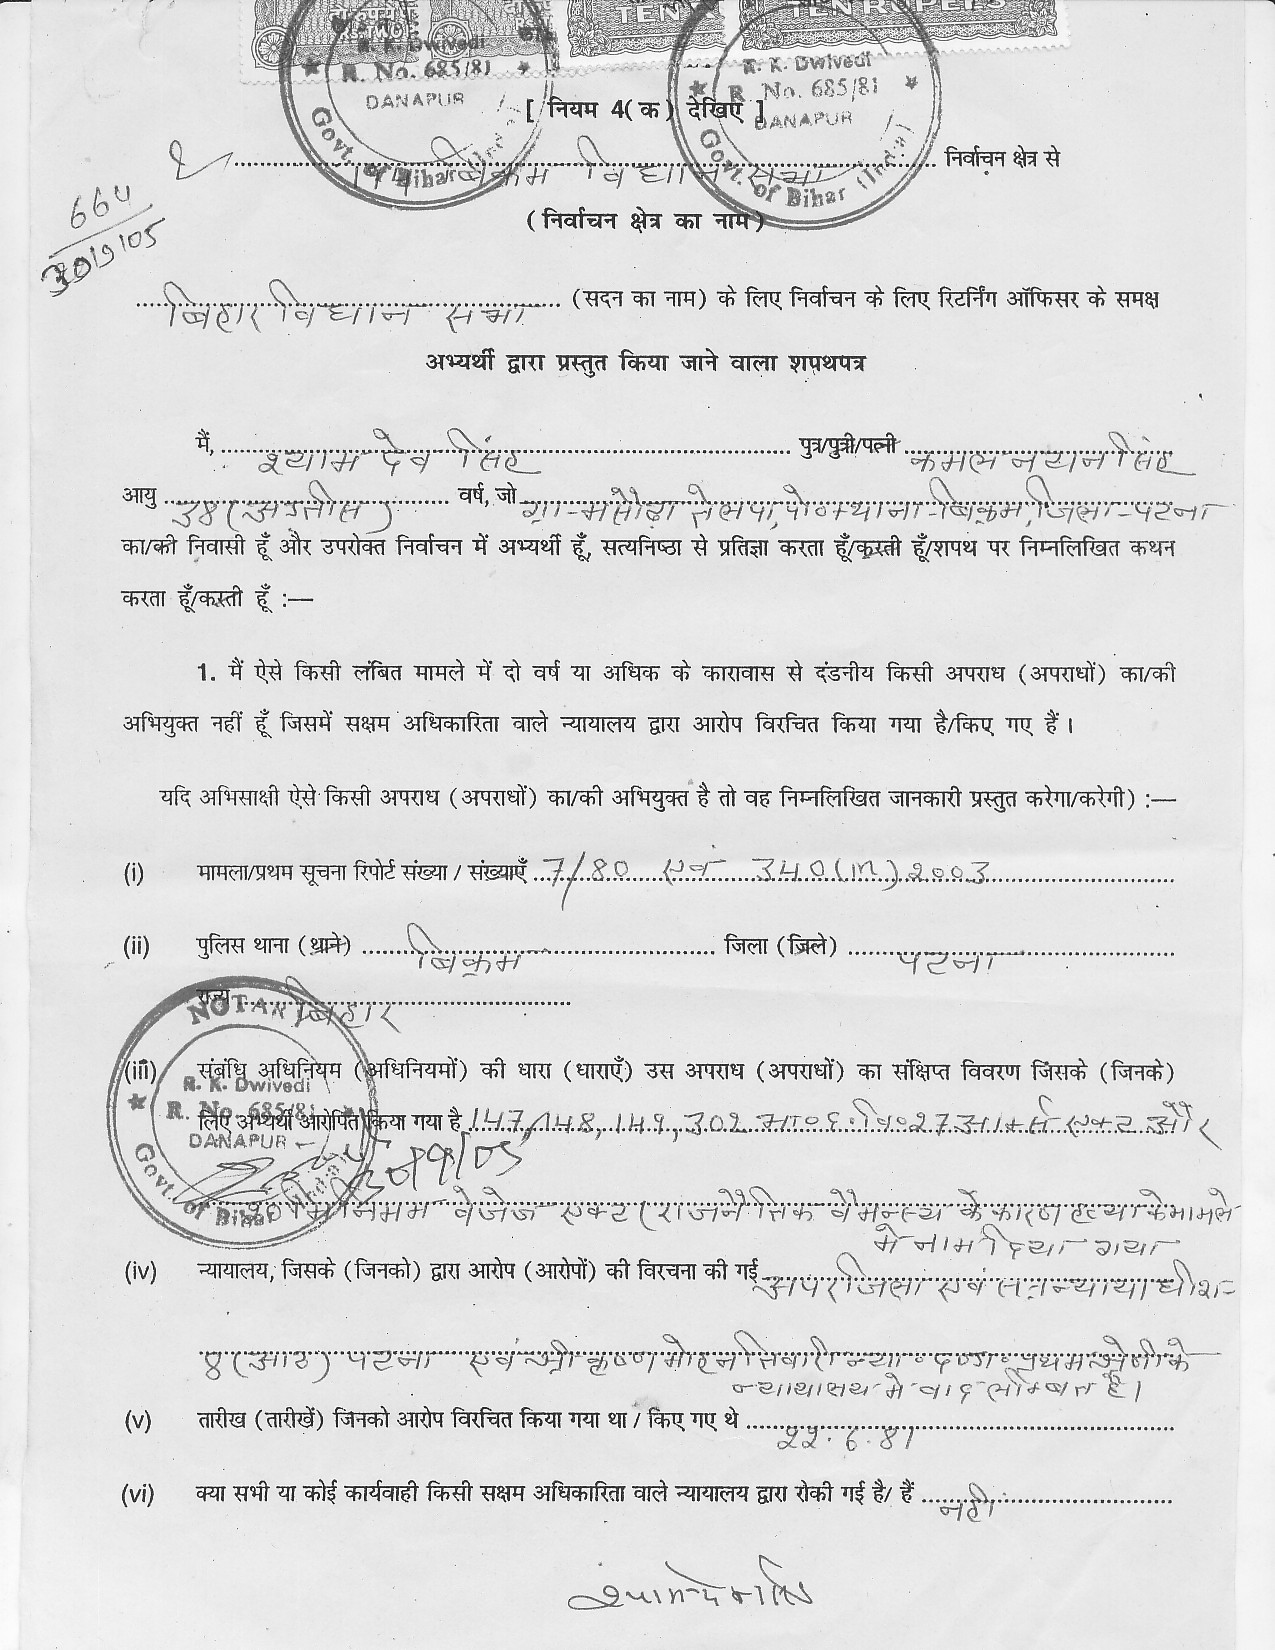 TEN RUPEES
R. K. Dwivedi
R. No. 685/81
DANAPUR
Govt. of Bihar (India)
R. K. Dwivedi
R. No. 685/81
DANAPUR
Govt. of Bihar (India)
[ नियम 4( क ) देखिए ]
बिक्रम विधान सभा निर्वाचन क्षेत्र से
664
30/9/05
( निर्वाचन क्षेत्र का नाम )
बिहार विधान सभा (सदन का नाम) के लिए निर्वाचन के लिए रिटर्निंग ऑफिसर के समक्ष
अभ्यर्थी द्वारा प्रस्तुत किया जाने वाला शपथपत्र
मैं, श्याम देव सिंह पुत्र/पुत्री/पत्नी कमल नयन सिंह
आयु 38 (अड़तीस) वर्ष, जो ग्रा-मसौढ़ा पो० थाना-बिक्रम, जिला-पटना
का/की निवासी हूँ और उपरोक्त निर्वाचन में अभ्यर्थी हूँ, सत्यनिष्ठा से प्रतिज्ञा करता हूँ/करती हूँ/शपथ पर निम्नलिखित कथन
करता हूँ/करती हूँ :—
1. मैं ऐसे किसी लंबित मामले में दो वर्ष या अधिक के कारावास से दंडनीय किसी अपराध (अपराधों) का/की
अभियुक्त नहीं हूँ जिसमें सक्षम अधिकारिता वाले न्यायालय द्वारा आरोप विरचित किया गया है/किए गए हैं ।
यदि अभिसाक्षी ऐसे किसी अपराध (अपराधों) का/की अभियुक्त है तो वह निम्नलिखित जानकारी प्रस्तुत करेगा/करेगी) :—
(i) मामला/प्रथम सूचना रिपोर्ट संख्या / संख्याएँ 7/80 एवं 340(m)2003
(ii) पुलिस थाना (थाने) बिक्रम जिला (जिले) पटना
राज्य बिहार
NOTARY
R. K. Dwivedi
R. No. 685/81
DANAPUR
Govt. of Bihar (India)
(iii) संबंधि अधिनियम (अधिनियमों) की धारा (धाराएँ) उस अपराध (अपराधों) का संक्षिप्त विवरण जिसके (जिनके)
लिए अभ्यर्थी आरोपित किया गया है 147, 148, 149, 302 भा०द०वि० 27 आर्म्स एक्ट और
30/9/05
मिनिमम वेजेज एक्ट (राजनैतिक वैमनस्य के कारण हत्या के मामले
मे नाम दिया गया
(iv) न्यायालय, जिसके (जिनको) द्वारा आरोप (आरोपों) की विरचना की गई अपर जिला एवं सत्र न्यायाधीश-
8 (आठ) पटना एवं श्री कृष्ण मोहन तिवारी न्या० दण्डा० प्रथम श्रेणी के
न्यायालय मे वाद लम्बित है।
(v) तारीख (तारीखें) जिनको आरोप विरचित किया गया था / किए गए थे 22.6.81
(vi) क्या सभी या कोई कार्यवाही किसी सक्षम अधिकारिता वाले न्यायालय द्वारा रोकी गई है/ हैं नही
श्याम देव सिंह